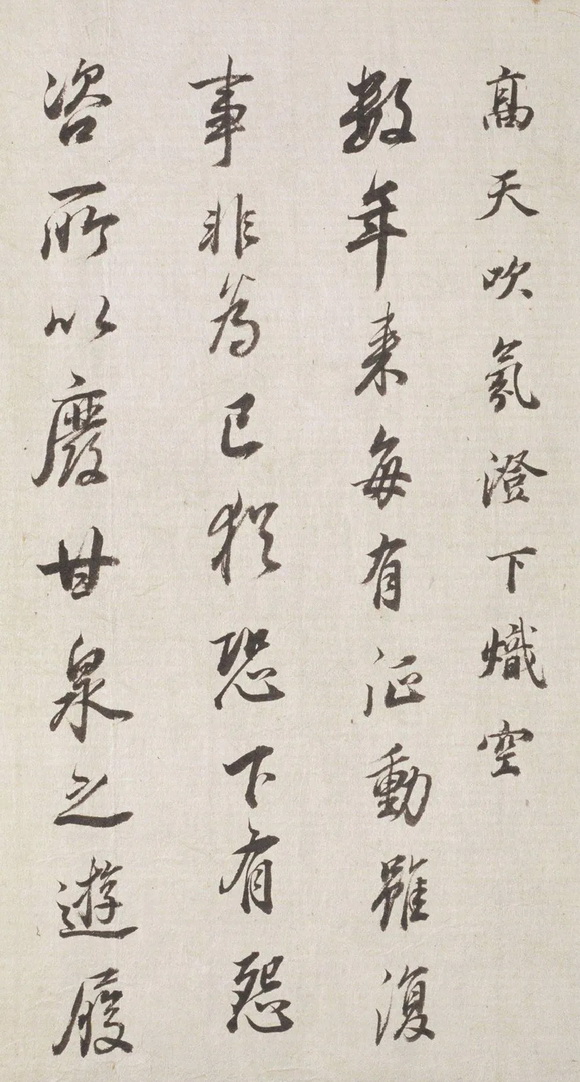 高天吹氛澄下熾空
數年来每有征動雖復
事非為己猶恐下有怨
咨所以廢甘泉之遊履